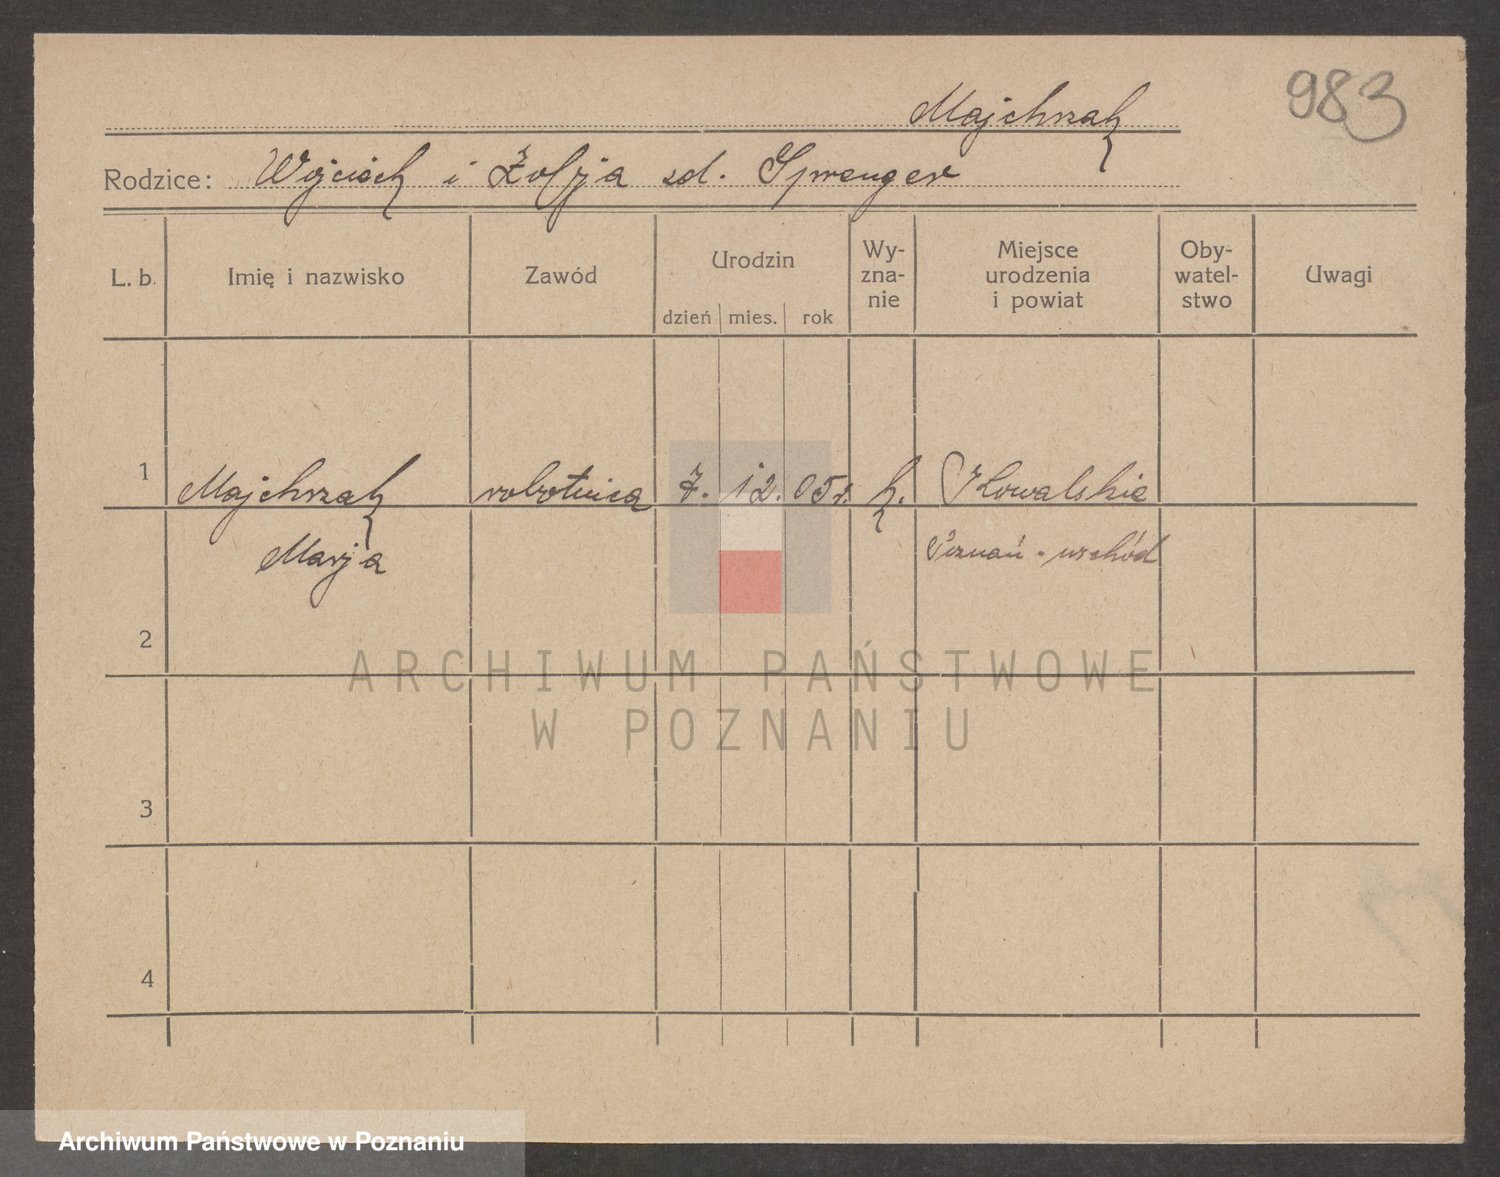 983
Majchrzak
Rodzice: Wojciech i Zofja zd. Sprenger
L. b. Imię i nazwisko Zawód Urodzin dzień mies. rok Wy-zna-nie Miejsce urodzenia i powiat Oby-watel-stwo Uwagi
1 Majchrzak robotnica 7. 12. 05 r. k. Kowalskie
Marja Poznań - wschód
2
ARCHIWUM PAŃSTWOWE
W POZNANIU
3
4
Archiwum Państwowe w Poznaniu